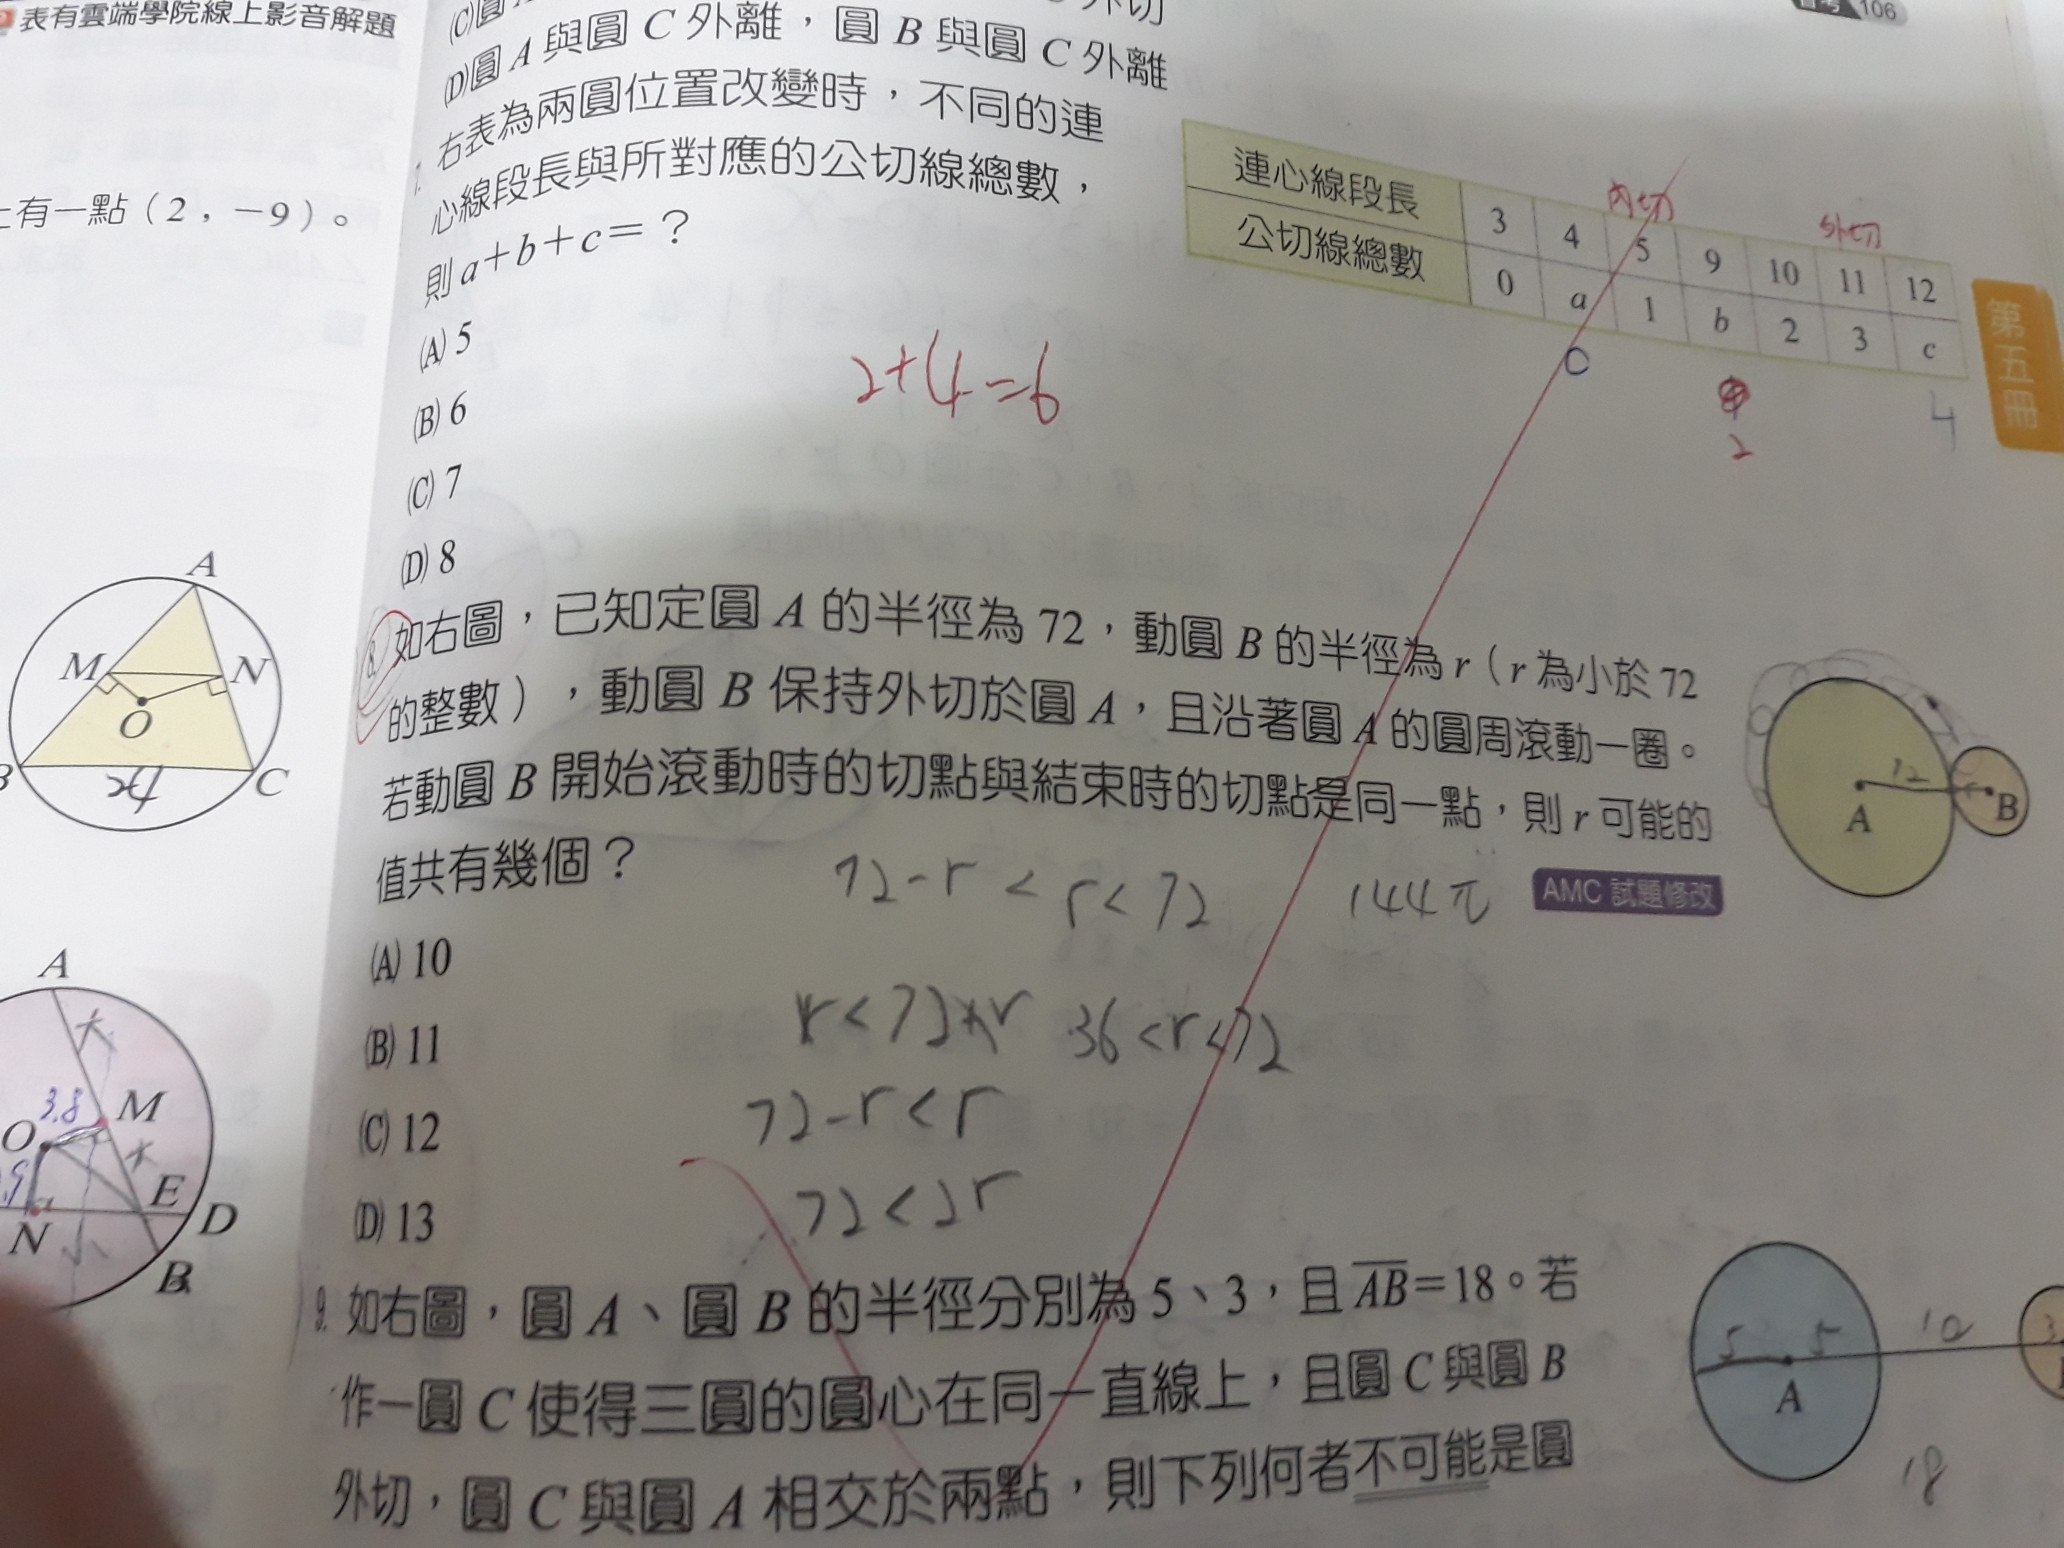 表有雲端學院線上影音解題
106
(C)圓
外切
(D)圓 A 與圓 C 外離，圓 B 與圓 C 外離
上有一點（2，－9）。
7. 右表為兩圓位置改變時，不同的連
心線段長與所對應的公切線總數，
則 a＋b＋c＝？
(A) 5
(B) 6
(C) 7
(D) 8
內切
外切
連心線段長 3 4 5 9 10 11 12
公切線總數 0 a 1 b 2 3 c
0
2
4
2+4=6
第五冊
A
M
N
O
B
C
24
8. 如右圖，已知定圓 A 的半徑為 72，動圓 B 的半徑為 r（r 為小於 72
的整數），動圓 B 保持外切於圓 A，且沿著圓 A 的圓周滾動一圈。
若動圓 B 開始滾動時的切點與結束時的切點是同一點，則 r 可能的
值共有幾個？
AMC 試題修改
(A) 10
(B) 11
(C) 12
(D) 13
72-r < r < 72
144π
36<r<72
72-r<r
72<2r
A
B
r
A
3.8
M
O
E
D
N
B
9. 如右圖，圓 A、圓 B 的半徑分別為 5、3，且 AB＝18。若
作一圓 C 使得三圓的圓心在同一直線上，且圓 C 與圓 B
外切，圓 C 與圓 A 相交於兩點，則下列何者不可能是圓
5
5
10
3
A
18